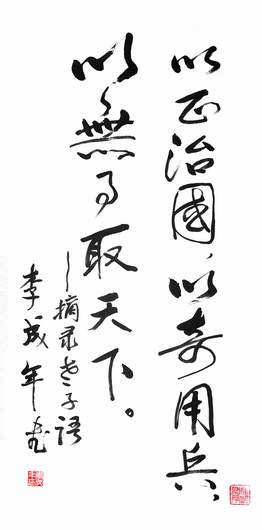 以正治國，以奇用兵，
以無事取天下。
——摘录老子語
李成年书